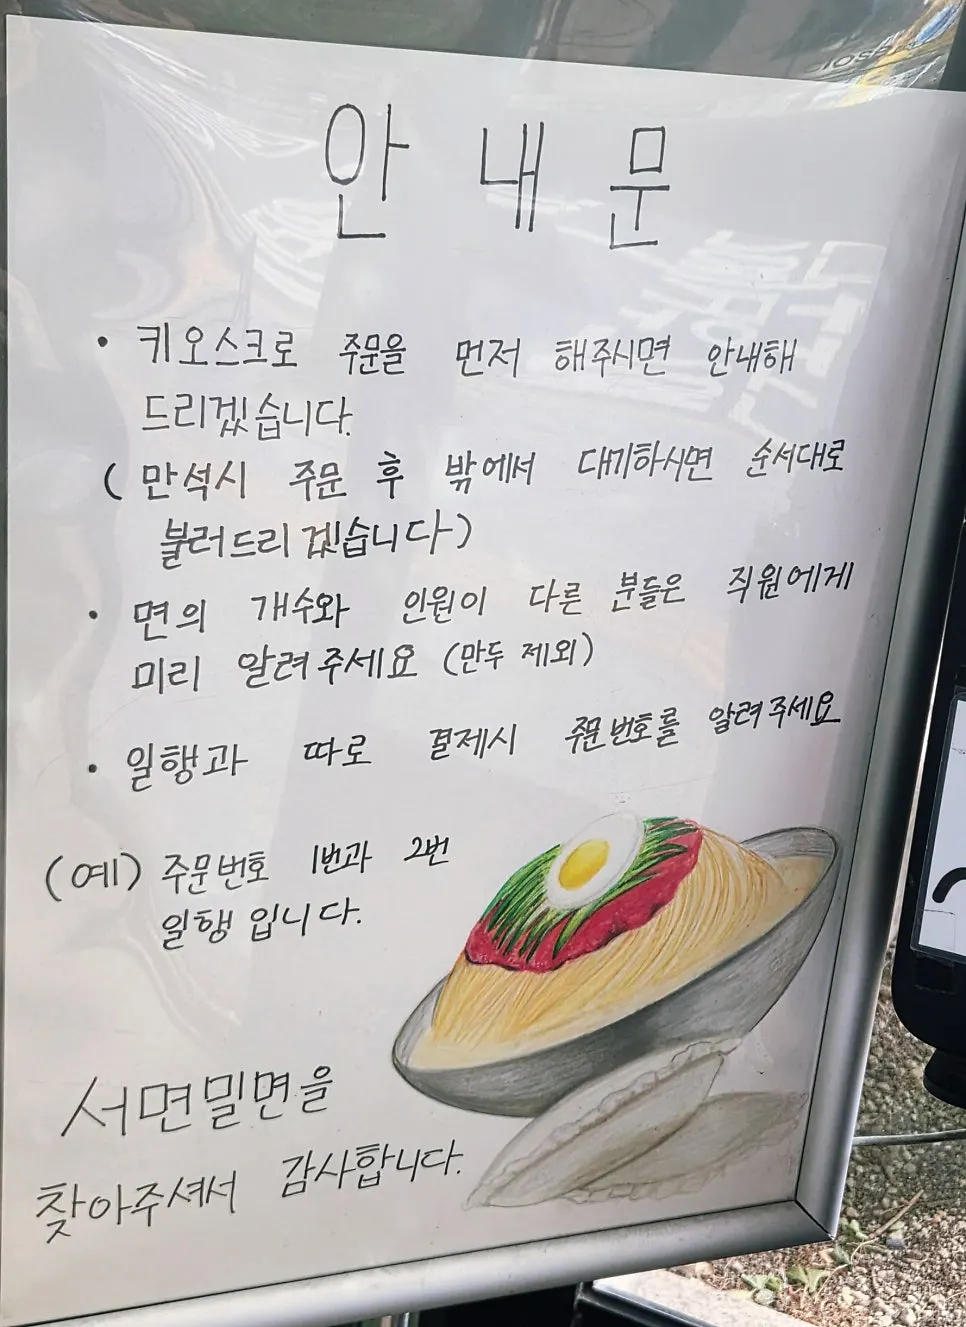 안내문
• 키오스크로 주문을 먼저 해주시면 안내해
드리겠습니다.
( 만석시 주문 후 밖에서 대기하시면 순서대로
불러드리겠습니다)
• 면의 개수와 인원이 다른 분들은 직원에게
미리 알려주세요 (만두 제외)
• 일행과 따로 결제시 주문번호를 알려주세요
(예) 주문번호 1번과 2번
일행입니다.
서면밀면을
찾아주셔서 감사합니다.